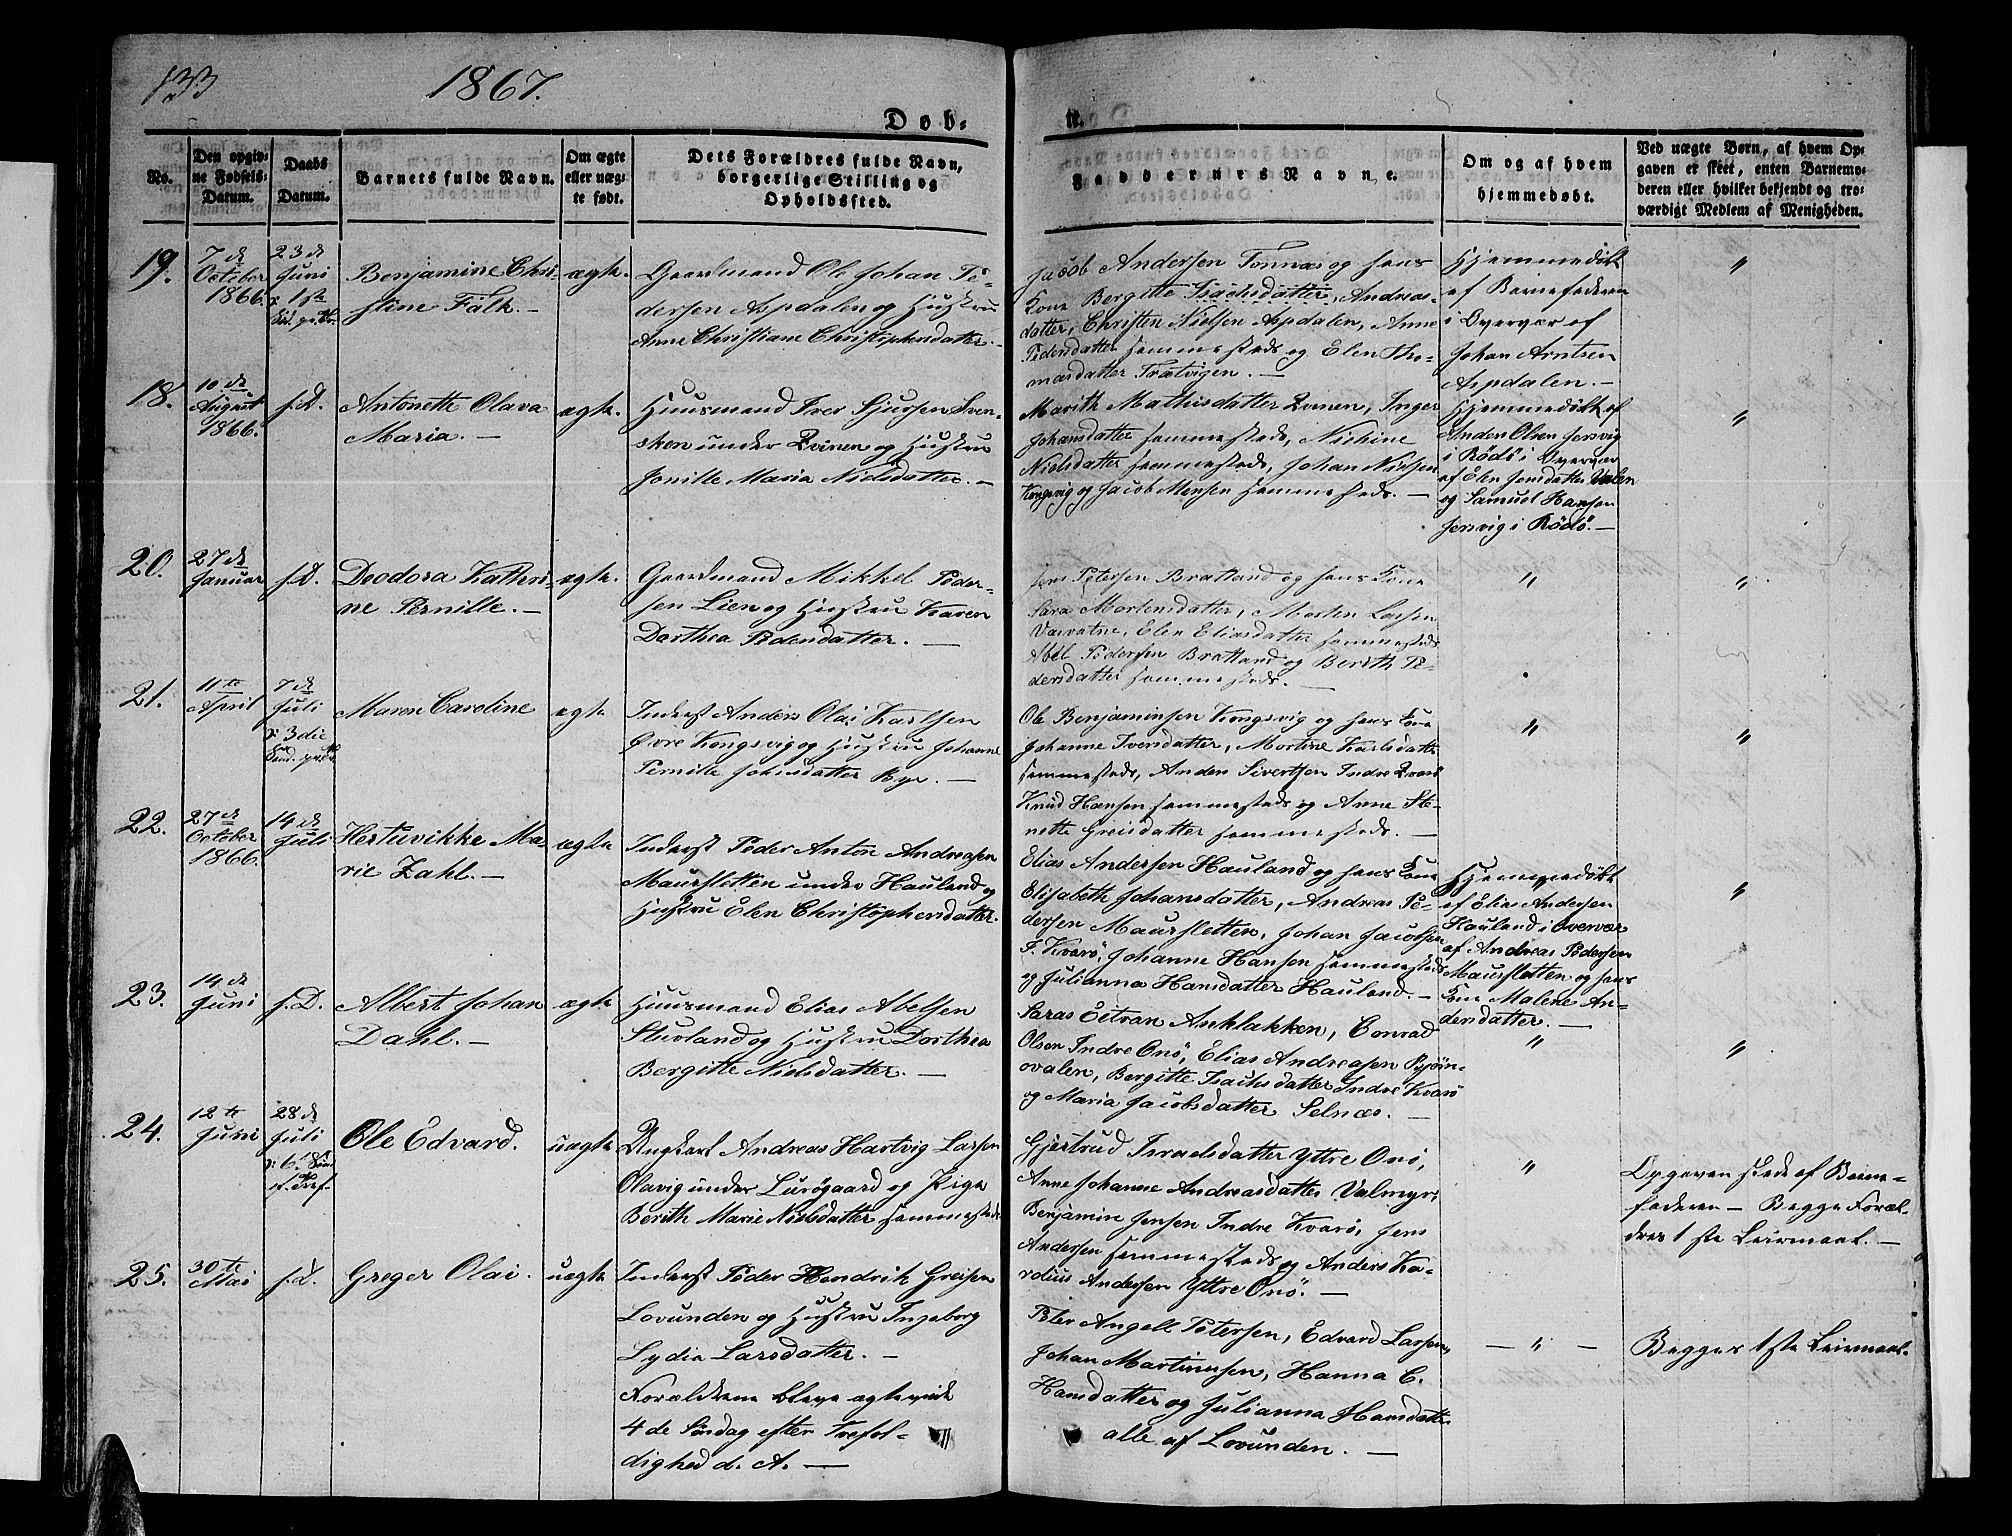 133
1867.
Døb-
te.
No.
Den opgiv-
ne Fødsels-
Datum.
Daabs
Datum.
Barnets fulde Navn.
Om ægte
eller uæg-
te født.
Dets Forældres fulde Navn,
borgerlige Stilling og
Opholdssted.
Faddernes Navne.
Om og af hvem
hjemmedøbt.
Ved uægte Børn, af hvem Op-
gaven er skeet, enten Barnemo-
deren eller hvilket bekjendt og tro-
værdigt Medlem af Menigheden.
19.
7 de
October
1866.
23 de
Juni
1ste
Benjamine Chri-
stine Falk. —
ægte.
Gaardmand Ole Johan Pe-
dersen Aspdalen og Hustru
Anne Christiane Christophersdatter. —
Jacob Andersen Tonnæs og hans
Kone Bergitte Isachsdatter, Andreas-
datter, Christen Nielsen Aspdalen, Anne
Pedersdatter sammesteds og Elen Tho-
masdatter Trætvigen. —
Hjemmedøbt
af Barnefaderen
i Overvær af
Johan Arntsen
Aspdalen. —
"
18.
10 de
August
1866.
s. D.
Antonette Olava
Maria. —
ægte.
Huusmand Iver Sjursen Sven-
sken under Qvinen og Hustru
Jonille Maria Nielsdatter. —
Marith Mathisdatter Qvinen, Inger
Johansdatter sammesteds, Nichine
Nielsdatter sammesteds, Johan Nielsen
Kongsvig og Jacob Monsen sammesteds. —
Hjemmedøbt af
Anders Olsen Jersvig
i Rödö i Overvær
af Elen Jensdatter Valen
og Samuel Hansen
Jersvig i Rödö. —
"
20.
27 de
Januar
s. D.
Deodora Kathri-
ne Pernille. —
ægte.
Gaardmand Mikkel Peder-
sen Lien og Hustru Karen
Dorthea Pedersdatter. —
Jens Petersen Bratland og hans Kone
Sara Mortensdatter, Morten Larsen
Varvatne, Elen Eliasdatter sammesteds
Abel Pedersen Bratland og Berith Pe-
dersdatter sammesteds. —
"
"
21.
11te
April
7 de
Juli
3die
Maren Caroline
ægte
Inderst Anders Olai Karlsen
Övre Kongsvig og Hustru Johanne
Pernille Johnsdatter Rye. —
Ole Benjaminsen Kongsvig og hans Kone
Johanne Iversdatter, Mortine Karlsdatter
sammesteds, Anders Sivertsen Indre Qvarö
Knud Hansen sammesteds og Anne Ste-
nette Greisdatter sammesteds. —
"
"
22.
27 de
October
1866.
14 de
Juli
Hertuvikke Ma-
rie Zahl. —
ægte
Inderst Peder Anton Andreasen
Maursletten under Hauland og
Hustru Elen Christophersdatter.
Elias Andersen Hauland og hans Kone
Elisabeth Johansdatter, Andreas Pe-
dersen Maursletten, Johan Jacobsen
I. Kvarö, Johanne Hansen sammesteds
og Julianna Hansdatter Hauland. —
Hjemmedøbt
af Elias Andersen
Hauland i Overvær
af Andreas Pedersen
Maursletten og hans
Kone Malene An-
dersdatter. —
"
23.
14 de
Juni
s. D.
Albert Johan
Dahl. —
ægte
Huusmand Elias Abelsen
Stuvland og Hustru Dorthea
Bergitte Nielsdatter. —
Olsen Indre Onö, Elias Andreasen Bjørn-
ovalen, Bergitte Isachsdatter Indre Kvarö
og Maria Jacobsdatter Selnæs. —
"
"
24.
12 te
Juni
28 de
Juli
Ole Edvard.
uægte
Ungkarl Andreas Hartvig Larsen
Olavig under Lurøgaard og Pige
Berith Marie Nielsdatter sammesteds
Gjertrud Israelsdatter Yttre Onö,
Anne Johanne Andreasdatter Valmyr,
Benjamin Jensen Indre Kvarö, Jens
Andersen sammesteds og Anders Ka-
rolius Andersen Yttre Onö. —
"
Opgaven skede af Barne-
faderen — Begge Foræl-
dres 1ste Leiermaal. —
25.
30te
Mai
s. D.
Greger Olai.
uægte
Inderst Peder Hendrik Greisen
Lovunden og Hustru Ingeborg
Lydia Larsdatter. —
Forældrene bleve ægteviede
4de Söndag efter Trefol-
dighed d. A. —
Peter Angell Petersen, Edvard Larsen,
Johan Martinusen, Hanna C.
Hansdatter og Julianna Hansdatter
alle af Lovunden. —
— " —
Begges 1ste Leiermaal.